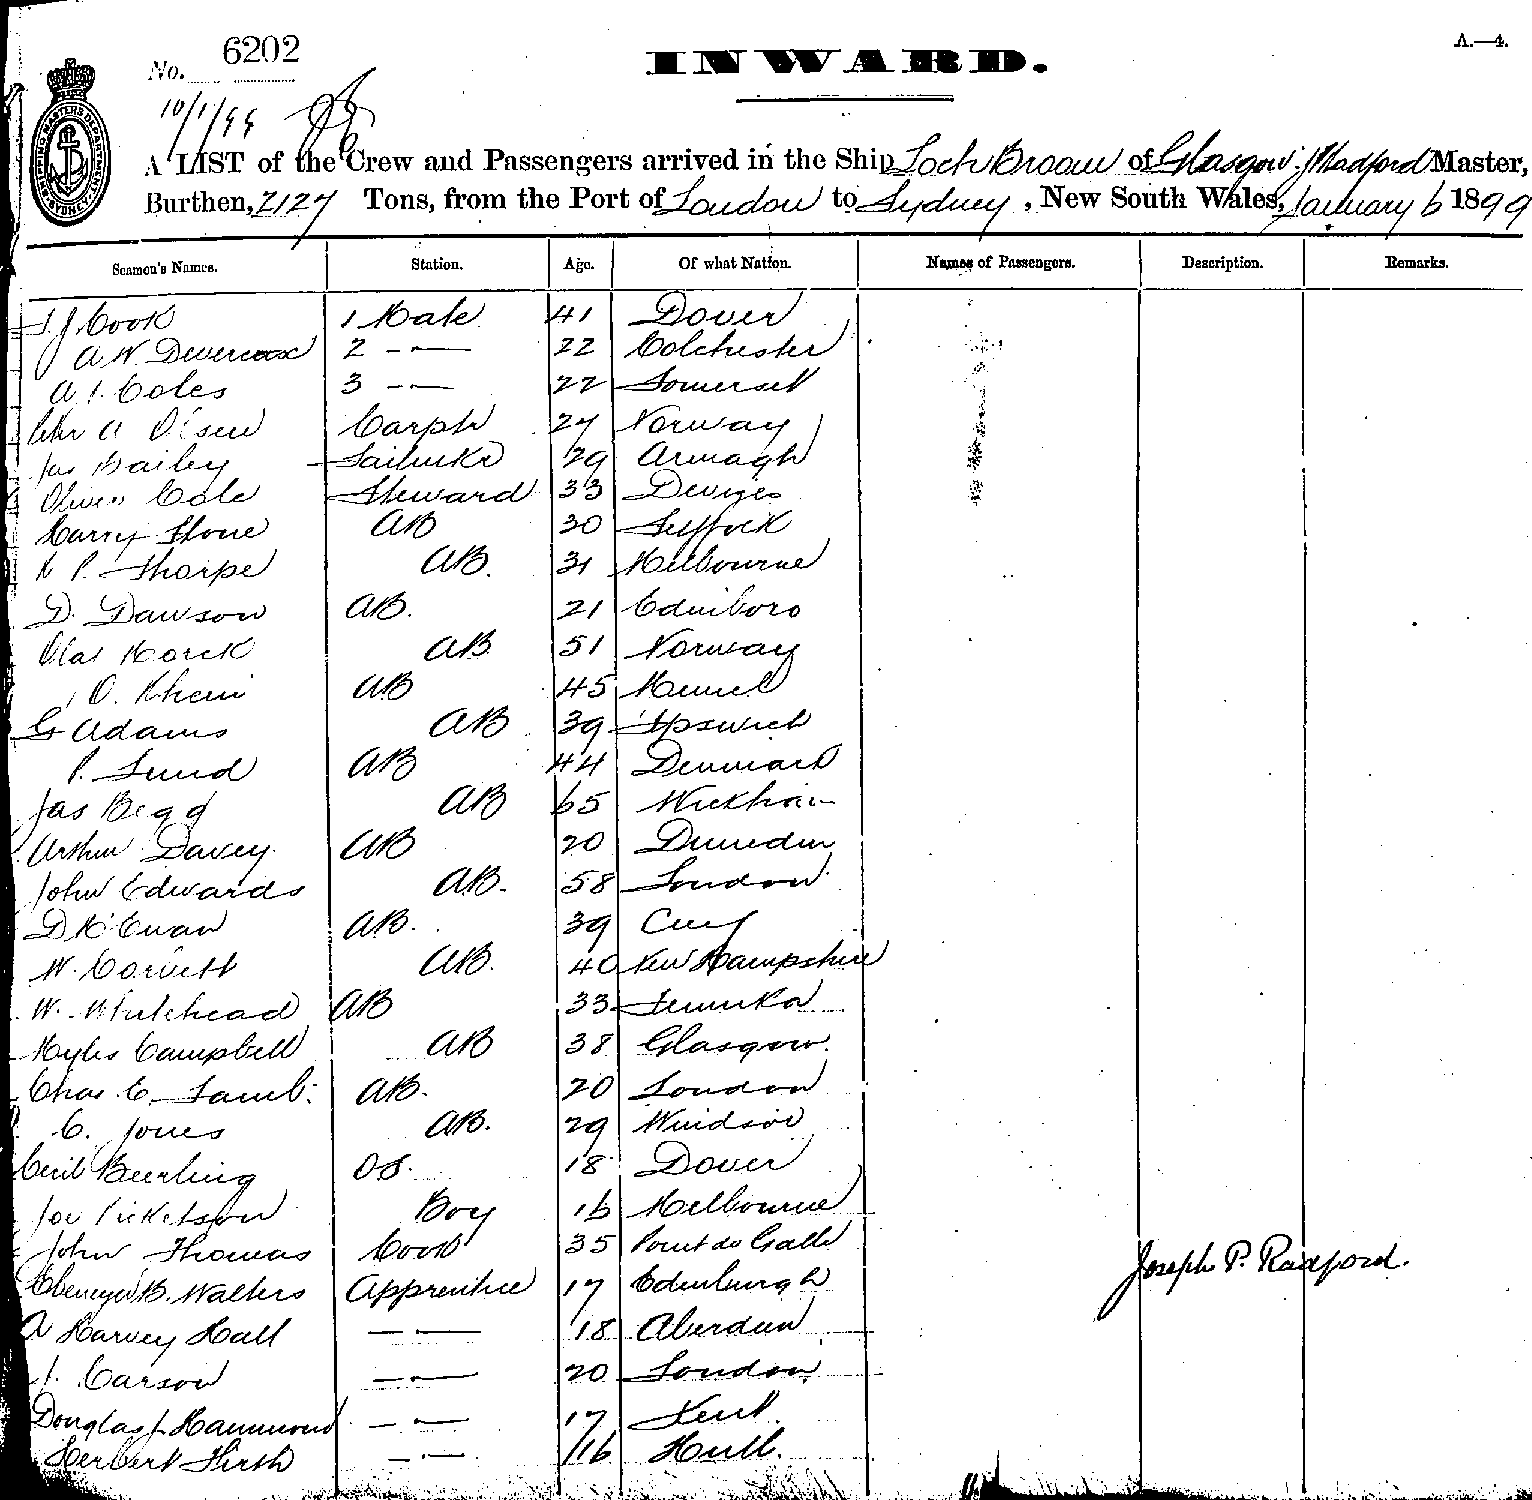 A.—4.
No. 6202
INWARD.
10/1/99
A LIST of the Crew and Passengers arrived in the Ship Loch Broom of Glasgow, J Radford Master,
Burthen, 2127 Tons, from the Port of London to Sydney, New South Wales, January 6 1899
Seamen's Names. Station. Age. Of what Nation. Names of Passengers. Description. Remarks.
J Cook 1 Mate 41 Dover
A W Devereux 2 — — 22 Colchester
A J. Coles 3 — — 22 Somerset
Chr A Olsen Carptr 27 Norway
Jas Bailey Sailmkr 29 Armagh
Oliver Cole Steward 33 Devizes
Harry Stone AB 30 Suffolk
P. Thorpe AB. 31 Melbourne
D. Dawson AB. 21 Edinboro
Olaf AB 51 Norway
O. AB 45 Memel
G Adams AB 39 Ipswich
P. Lund AB 44 Denmark
Jas Begg AB 65
Arthur Davey AB 20 Dunedin
John Edwards AB. 58 London
D McEwan AB. 39
W. Corbett AB. 40 New Hampshire
W. Whitehead AB 33 Temuka
Myles Campbell AB 38 Glasgow.
Chas E. Lamb. AB. 20 London
C. Jones AB. 29 Windsor
Cecil Beerling OS. 18 Dover
Joe Ricketson Boy 16 Melbourne
John Thomas Cook 35 Point de Galle
Ebenezer B. Walters Apprentice 17 Edinburgh
Joseph P. Radford.
A Harvey Hall — — 18 Aberdeen
J. Carson — — 20 London
Douglas J. Hammond — — 17 Kent.
Herbert Firth — — 16 Hull.